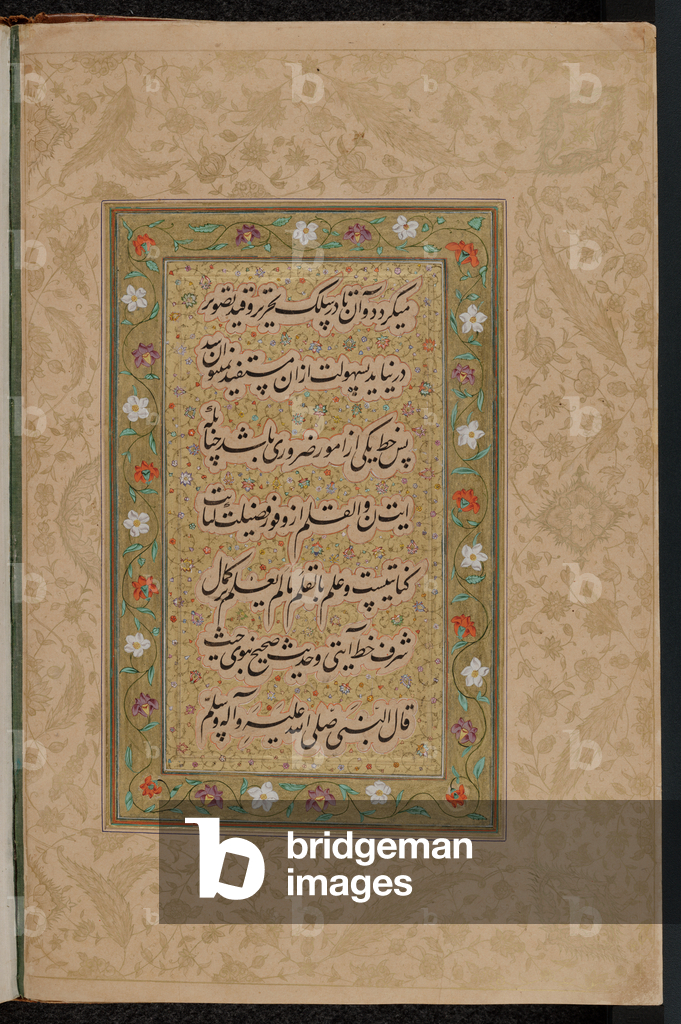 میگردد و آن تا در سلک تحریر و قید تصویر
در نیاید بسهولت ازان مستفید نمیتوان شد
پس خط یکی از امور ضروری باشد چنانکه
ایت ن والقلم از وفور فضیلت کتابت
کنایتیست و علم بالقلم مالم یعلم بر کمال
شرف خط آیتی و حدیث صحیح نبوی حیث
قال النبی صلی الله علیه و آله وسلم
bridgeman
images